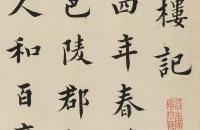 樓記
四年春
巴陵郡
人和百